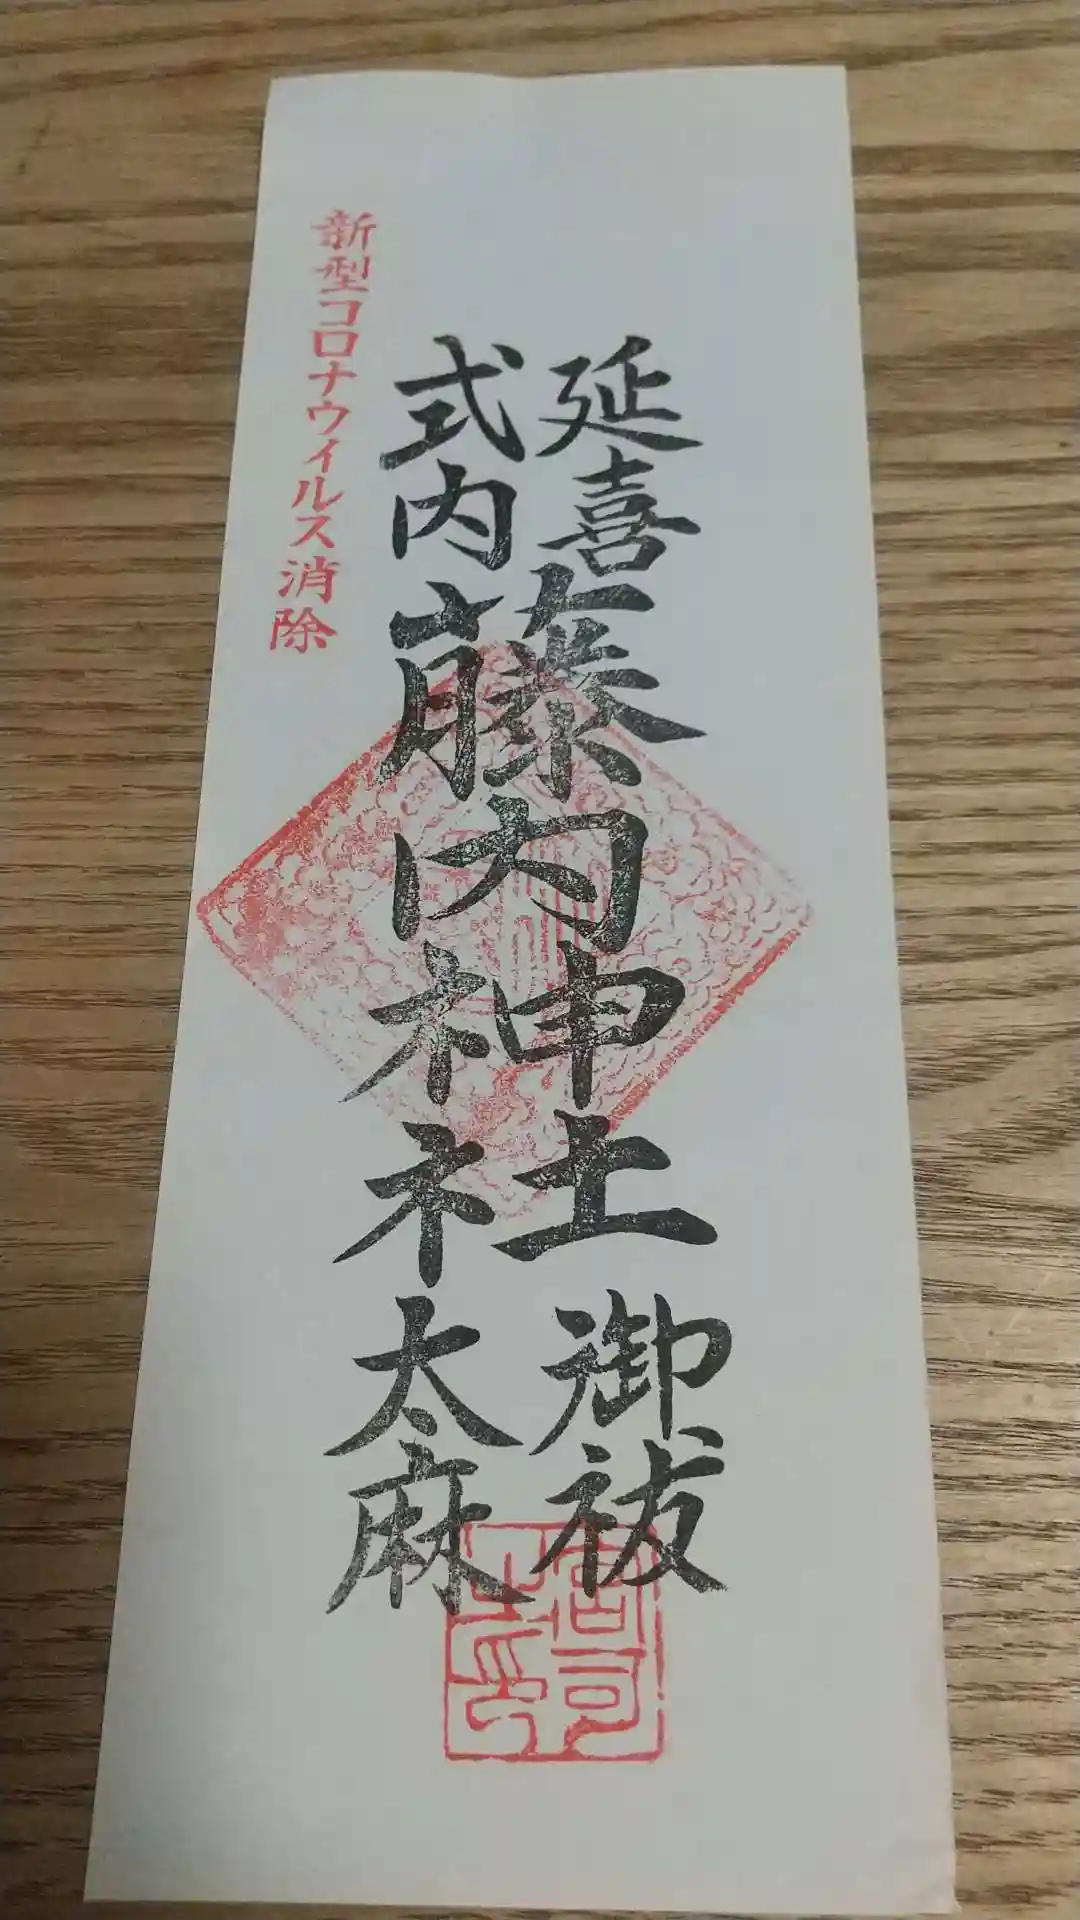 延喜
式内
藤内神社
御祓
太麻
新型コロナウイルス消除
宮司
之印